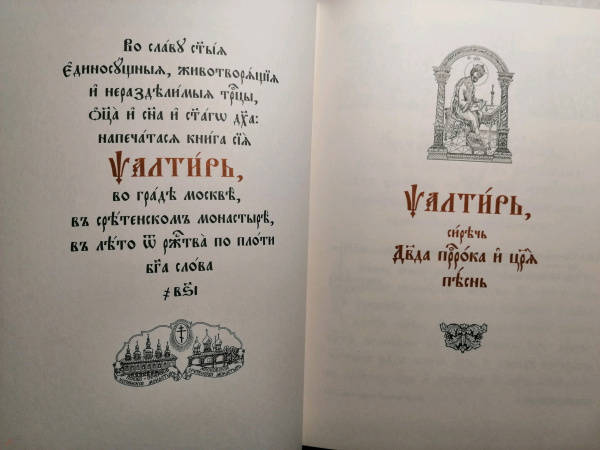 Во сла́ву ст҃ы́ѧ
є҆диносꙋ́щныѧ, животворѧ́щїѧ
и҆ нераздѣли́мыѧ трⷪ҇цы,
ѻ҆ц҃а̀ и҆ сн҃а и҆ ст҃а́гѡ дх҃а:
напеча́тасѧ кни́га сїѧ̀
Ѱалти́рь,
во гра́дѣ москвѣ̀,
въ срѣ́тенскомъ монастырѣ̀,
въ лѣ́то ѿ рж҃тва̀ по пло́ти
бг҃а сло́ва
҂вѕ҃і
Ѱалти́рь,
си́рѣчь
Дв҃да прⷪ҇ро́ка и҆ цр҃ѧ̀
пѣ́снь